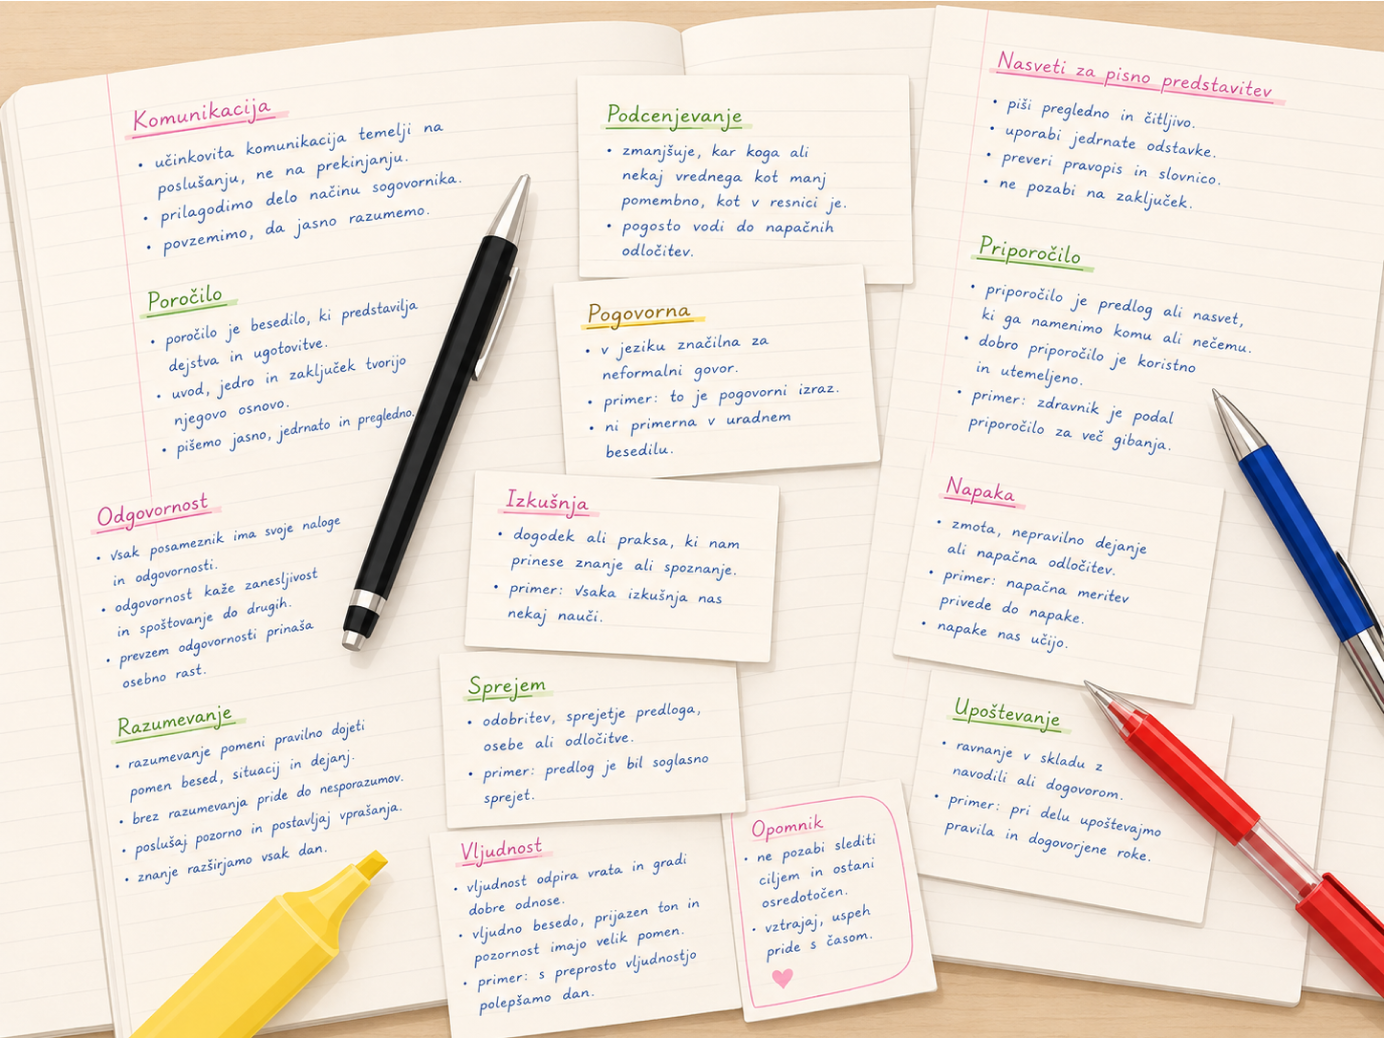 Komunikacija
• učinkovita komunikacija temelji na
poslušanju, ne na prekinjanju.
• prilagodimo delo načinu sogovornika.
• povzemimo, da jasno razumemo.
Poročilo
• poročilo je besedilo, ki predstavilja
dejstva in ugotovitve.
• uvod, jedro in zaključek tvorijo
njegovo osnovo.
• pišemo jasno, jedrnato in pregledno.
Odgovornost
• vsak posameznik ima svoje naloge
in odgovornosti.
• odgovornost kaže zanesljivost
in spoštovanje do drugih.
• prevzem odgovornosti prinaša
osebno rast.
Razumevanje
• razumevanje pomeni pravilno dojeti
pomen besed, situacij in dejanj.
• brez razumevanja pride do nesporazumov.
• poslušaj pozorno in postavljaj vprašanja.
• znanje razširjamo vsak dan.
Podcenjevanje
• zmanjšuje, kar koga ali
nekaj vrednega kot manj
pomembno, kot v resnici je.
• pogosto vodi do napačnih
odločitev.
Pogovorna
• v jeziku značilna za
neformalni govor.
• primer: to je pogovorni izraz.
• ni primerna v uradnem
besedilu.
Izkušnja
• dogodek ali praksa, ki nam
prinese znanje ali spoznanje.
• primer: vsaka izkušnja nas
nekaj nauči.
Sprejem
• odobritev, sprejetje predloga,
osebe ali odločitve.
• primer: predlog je bil soglasno
sprejet.
Vljudnost
• vljudnost odpira vrata in gradi
dobre odnose.
• vljudno besedo, prijazen ton in
pozornost imajo velik pomen.
• primer: s preprosto vljudnostjo
polepšamo dan.
Opomnik
• ne pozabi slediti
ciljem in ostani
osredotočen.
• vztrajaj, uspeh
pride s časom.
Nasveti za pisno predstavitev
• piši pregledno in čitljivo.
• uporabi jedrnate odstavke.
• preveri pravopis in slovnico.
• ne pozabi na zaključek.
Priporočilo
• priporočilo je predlog ali nasvet,
ki ga namenimo komu ali nečemu.
• dobro priporočilo je koristno
in utemeljeno.
• primer: zdravnik je podal
priporočilo za več gibanja.
Napaka
• zmota, nepravilno dejanje
ali napačna odločitev.
• primer: napačna meritev
privede do napake.
• napake nas učijo.
Upoštevanje
• ravnanje v skladu z
navodili ali dogovorom.
• primer: pri delu upoštevajmo
pravila in dogovorjene roke.